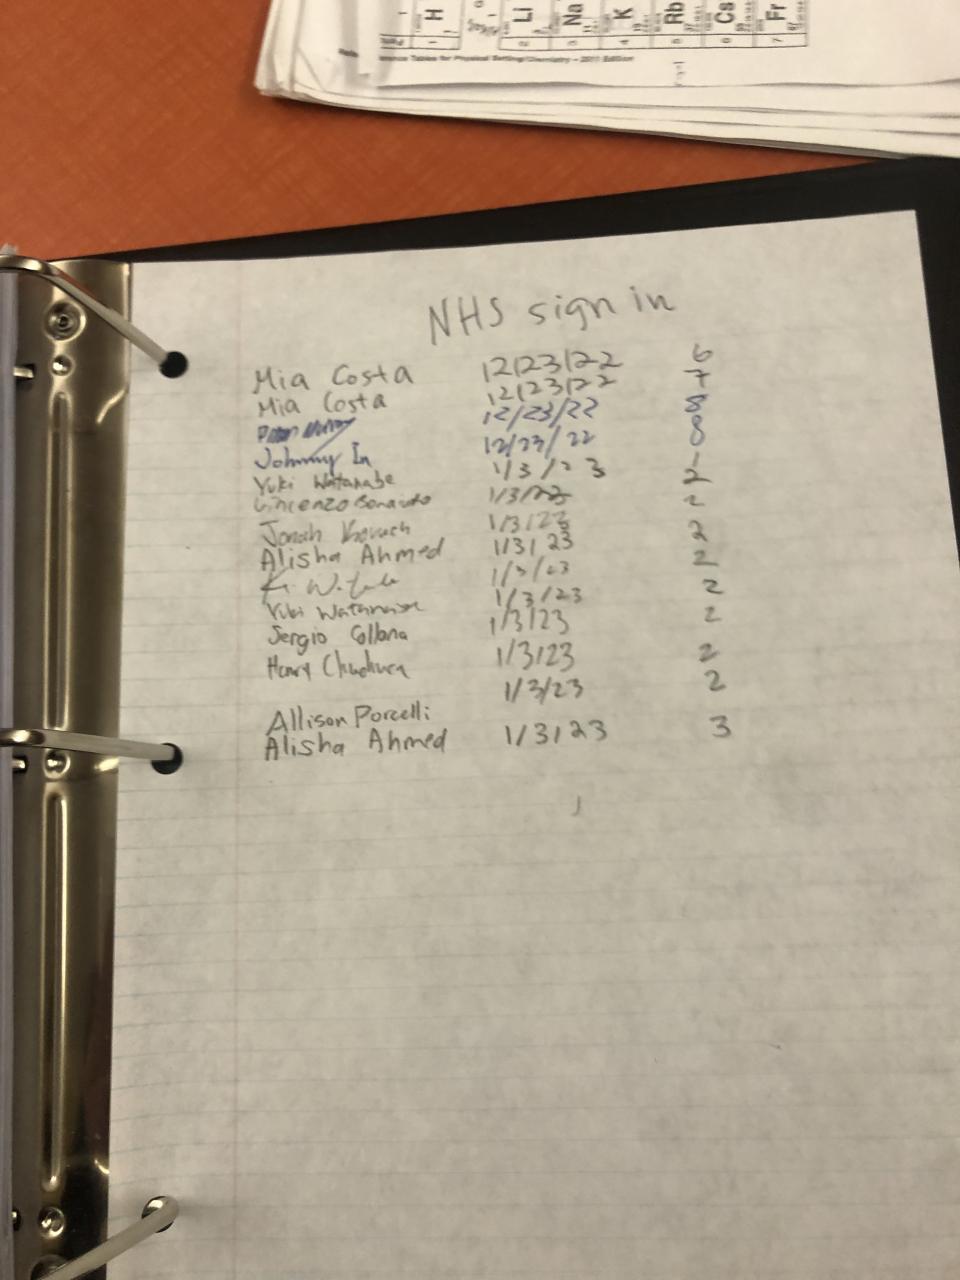 H Li Na K Rb Cs Fr
1 2 3 4 5 6 7
Tables for Physical Setting/Chemistry – 2011 Edition
NHS sign in
Mia Costa 12/23/22 6
Mia Costa 12/23/22 7
12/23/22 8
Johnny In 12/23/22 8
Yuki Watanabe 1/3/23 1
Vincenzo Bonaiuto 1/3/23 2
Jonah 1/3/23 2
Alisha Ahmed 1/3/23 2
K. W. 1/3/23 2
Yuki Watanabe 1/3/23 2
Sergio Collana 1/3/23 2
Henry 1/3/23 2
Allison Porcelli 1/3/23 2
Alisha Ahmed 1/3/23 3